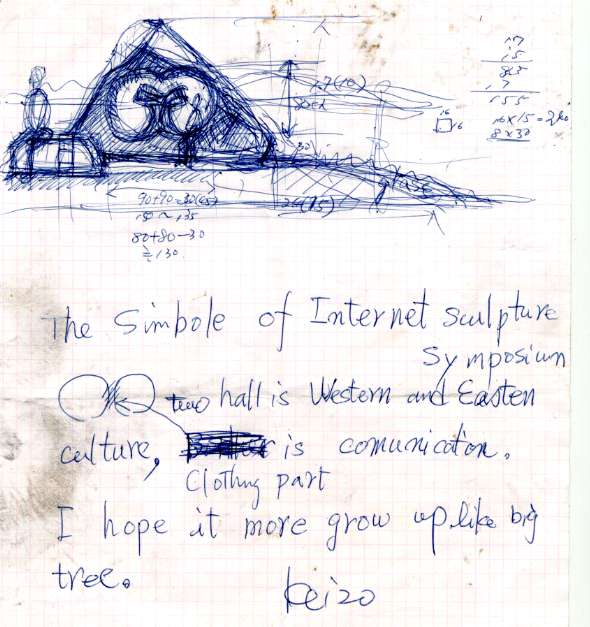 17
15
85
17
155
16
16
16x15=240
8x30
30
90+90-30(45)
80+80-30
≒130
The Simbole of Internet sculpture
Symposium
two hall is Western and Easten
culture, is comunicaton.
Clothing part
I hope it more grow up like big
tree.
Keizo